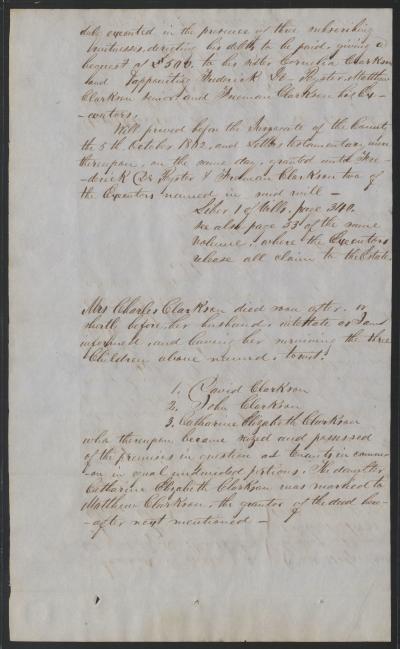 duly executed in the presence of three subscribing
witnesses, directing his debts to be paid, giving a
bequest of £500. to his sister Cornelia Clarkson
and appointing Frederick De Peyster, Matthew
Clarkson senior and Freeman Clarkson his Ex-
-ecutors.
Will proved before the Surrogate of the County,
the 5th October 1802, and Letters testamentary were
thereupon, on the same day, granted unto Fre-
-derick De Peyster & Freeman Clarkson two of
the Executors named in said will —
Liber 1 of Wills. page 340.
see also page 53 of the same
volume, where the Executors
release all claim to the Estate.
Mrs Charles Clarkson died soon after, or
shortly before her husband, intestate as I am
informed, and leaving her surviving the three
Children above named, to wit:
1. David Clarkson
2. John Clarkson
3. Catharine Elizabeth Clarkson
who thereupon became seized and possessed
of the premises in question as tenants in common
-on in equal undivided portions. The daughter
Catharine Elizabeth Clarkson was married to
Matthew Clarkson, the grantor of the deed here-
-after next mentioned —